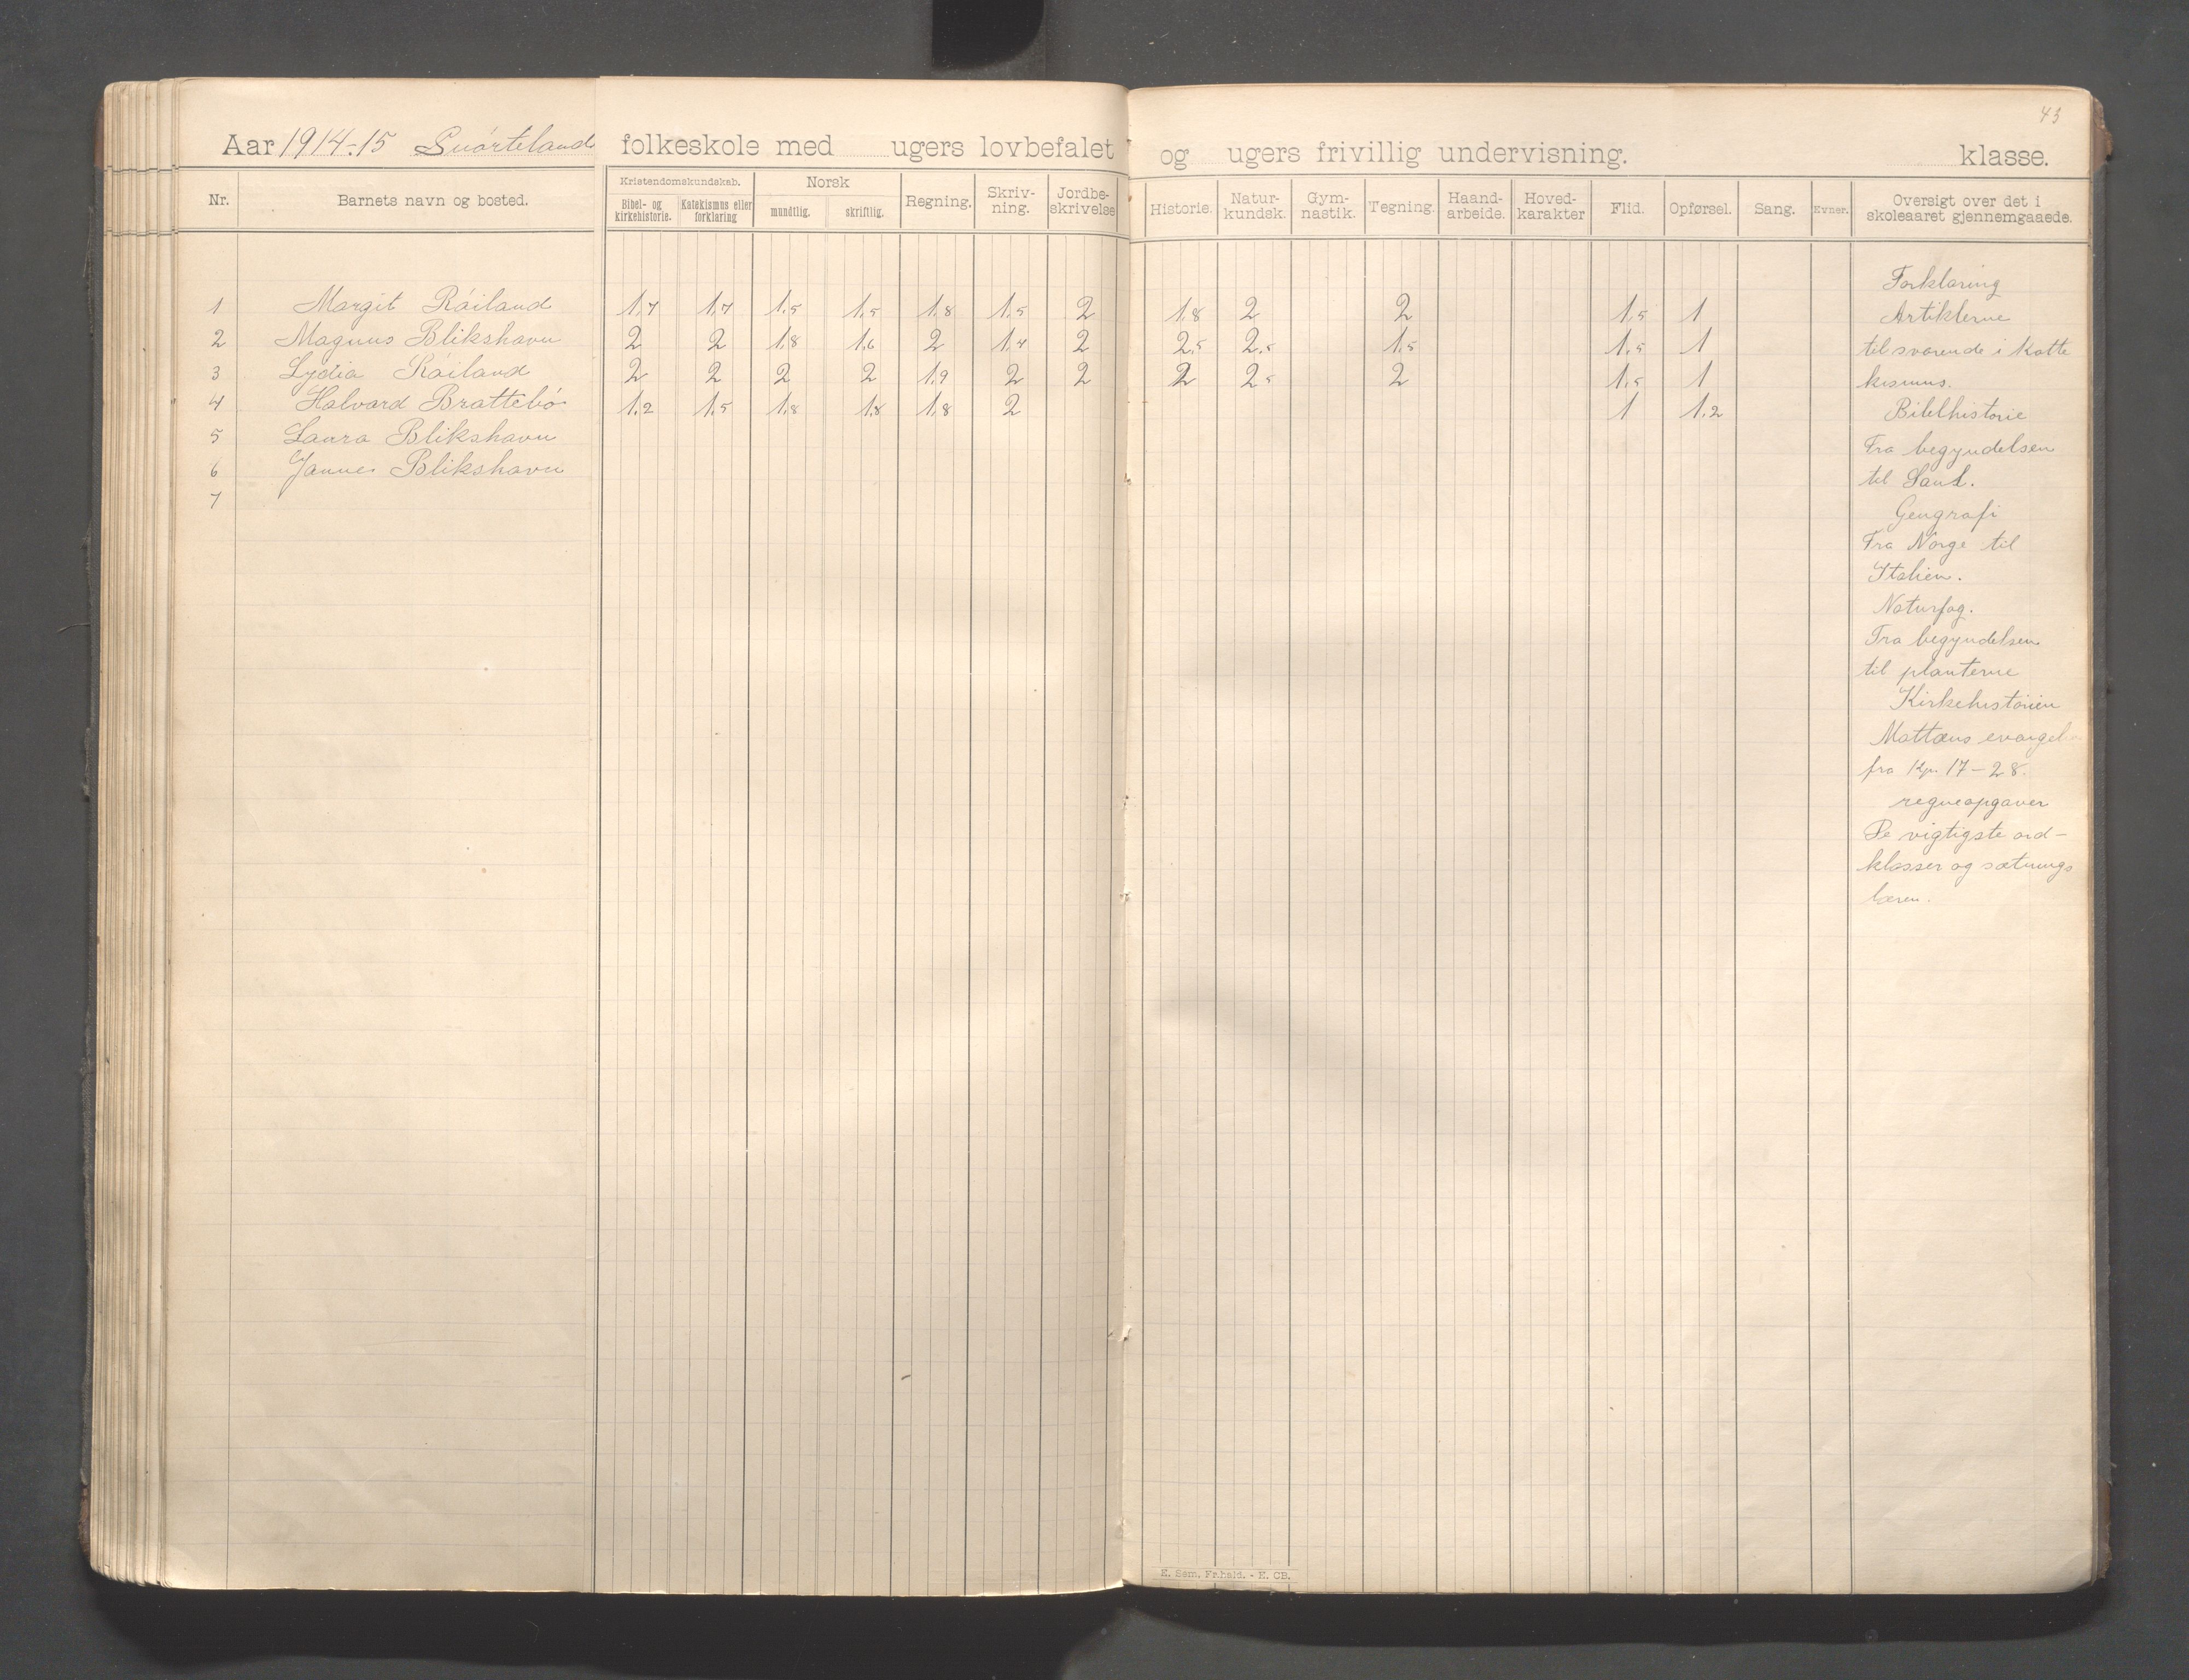 43
Aar 1914-15 Snørteland folkeskole med ugers lovbefalet og ugers frivillig undervisning. klasse.
Nr. Barnets navn og bosted. Kristendomskundskab. Bibel- og kirkehistorie. Katekismus eller forklaring Norsk mundtlig. skriftlig. Regning. Skriv-ning. Jordbe-skrivelse Historie. Natur-kundsk. Gym-nastik. Tegning. Haand-arbeide. Hoved-karakter Flid. Opførsel. Sang. Evner. Oversigt over det i skoleaaret gjennemgaaede.
1 Margit Røiland 1,7 1,7 1,5 1,5 1,8 1,5 2 1,8 2 2 1,5 1
2 Magnus Blikshavn 2 2 1,8 1,6 2 1,4 2 2,5 2,5 1,5 1,5 1
3 Lydia Røiland 2 2 2 2 1,9 2 2 2 2,5 2 1,5 1
4 Halvard Brattebø 1,2 1,5 1,8 1,8 1,8 2 1 1,2
5 Laura Blikshavn
6 Janne Blikshavn
7
Forklaring
Artiklerne
tilsvarende i Katte
kismus.
Bibelhistorie
Fra begyndelsen
til Saul.
Geografi
Fra Norge til
Italien.
Naturfag.
Fra begyndelsen
til planterne
Kirkehistorien
Mattæus evangeli
fra Kp. 17-28.
regneopgaver
De vigtigste ord-
klasser og sætnings
læren.
E. Sem. Fr.hald. - E. CB.